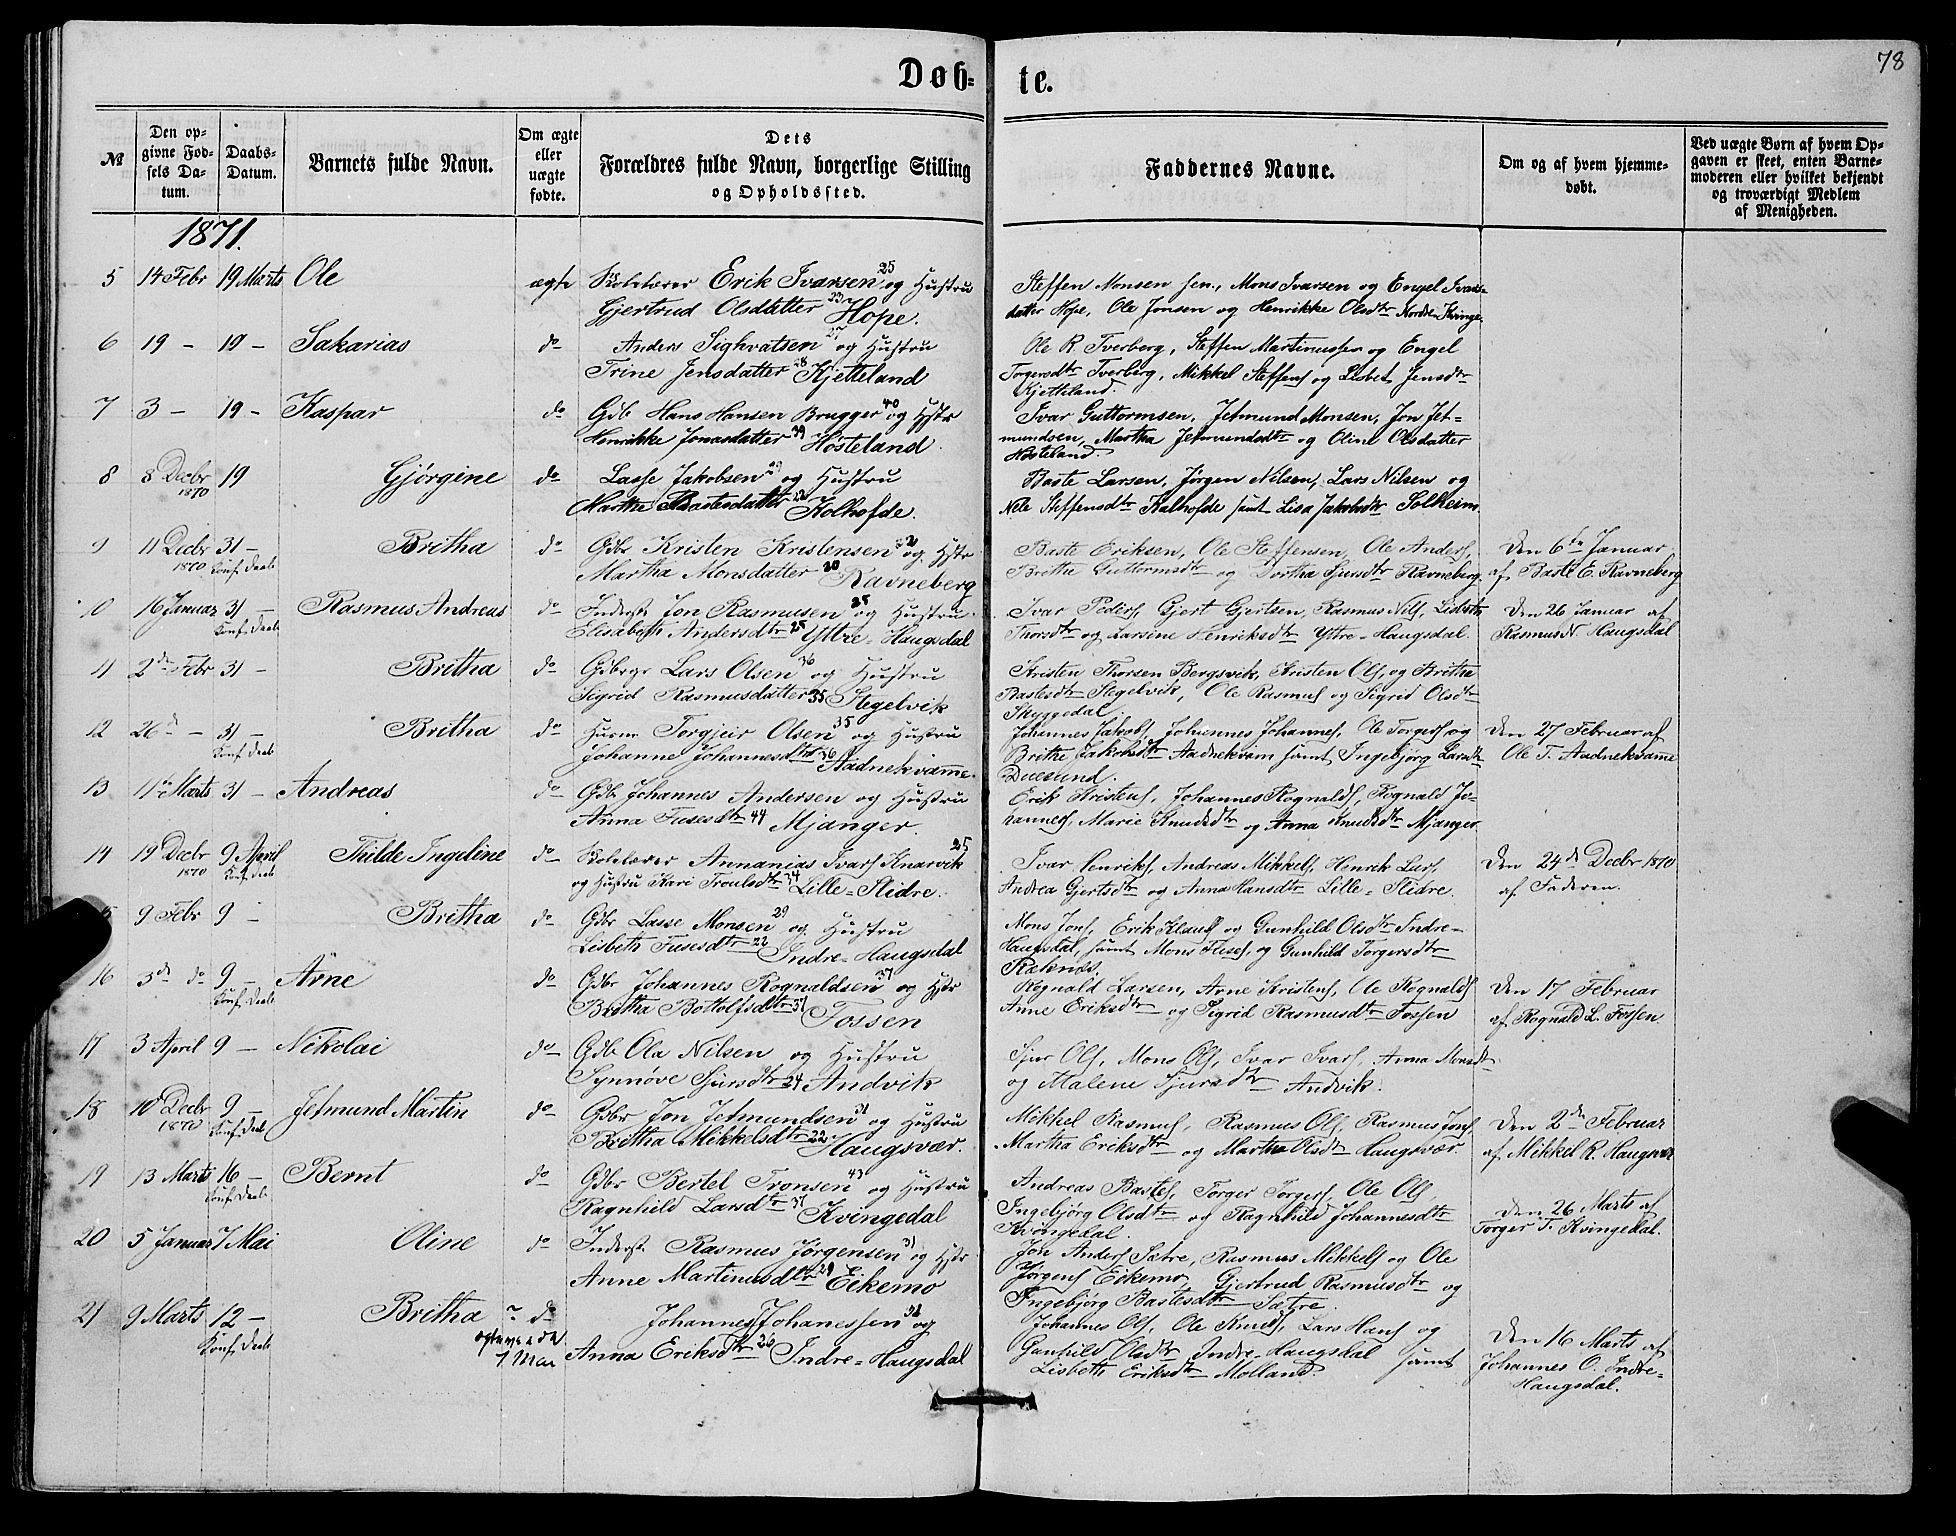 78
Døb-
te.
№
Den op-
givne Fød-
sels Da-
tum.
Daabs-
Datum.
Barnets fulde Navn.
Om ægte
eller
uægte
fødte.
Dets
Forældres fulde Navn, borgerlige Stilling
og Opholdssted.
Faddernes Navne.
Om og af hvem hjemme-
døbt.
Ved uægte Børn af hvem Op-
gaven er skeet, enten Barne-
moderen eller hvilket bekjendt
og troværdigt Medlem
af Menigheden.
1871.
5 14 Febr 19 Marts Ole ægte Skolelærer Erik Ivarsen 25 og Hustru
Gjertrud Olsdatter 23 Hope.
Steffen Monsen sen., Mons Ivarsen og Engel Ivars-
datter Hope, Ole Jonsen og Henrikke Olsdtr Nordre Kvinge.
6 19 - 19 - Sakarias do Anders Sighvatsen 27 og Hustru
Trine Jensdatter 28 Kjetteland
Ole R. Tverberg, Steffen Martinussen og Engel
Torgersdtr Tverberg, Mikkel Steffens og Lisbet Jensdtr
Kjetteland.
7 3 - 19 - Kaspar do Gdb Hans Hansen Brugger 40 og Hstr
Henrikke Jonasdatter 39 Hosteland.
Ivar Guttormsen, Jetmund Monsen, Jon Jet-
mundsen, Martha Jetmundsdtr og Oline Olsdatter
Hosteland
8 8 Decbr 1870 19 Gjørgine do Lasse Jakobsen og Hustru
Marthe Bastesdatter Kolhofde.
Baste Larsen, Jørgen Nilsen, Lars Nilsen og
Nele Steffensdtr Kalhofde samt Lisa Jakobsdtr Solheim.
9 11 Decbr 1870 31 - Konf. Daab Britha do Gdbr Kristen Kristensen og Hstr
Martha Monsdatter 30 Ravneberg
Baste Eriksen, Ole Steffensen, Ole Anders,
Brithe Guttormsdtr og Dortha Sjursdtr Ravneberg.
Den 6te Januar
af Baste E. Ravneberg
10 16 Januar 31 - Konf. Daab Rasmus Andreas do Inderst Jon Rasmusen 25 og Hustru
Elisabeth Andersdtr 25 Yttre-Haugsdal
Ivar Peders, Gjert Gjertsen, Rasmus Nils, Lisbeth
Thorsdtr og Larsine Henriksdtr Yttre-Haugsdal.
Den 26 Januar af
Rasmus N. Haugsdal
11 2den Febr 31 - Britha do Gdbrgr Lars Olsen 36 og Hustru
Sigrid Rasmusdatter 35 Stegelvik
Kristen Thorsen Bergsvik, Kristen Ols, og Britha
Bastesdtr Stegelvik, Ole Rasmus og Sigrid Olsdtr
Skyggedal.
12 26de - 31 - Konf. Daab Britha do Husm Torgjeir Olsen 35 og Hustru
Johanne Johannesdtr 36 Aadnekvamme.
Johannes Jakobs, Johannes Johannes, Ole Torgers og
Brithe Jakobsdtr Aadnekvam samt Ingebjørg Larsdtr
Duesund.
Den 27 Februar af
Ole T. Aadnekvamme
13 11te Marts 31 - Andreas do Gdb Johannes Andersen og Hustru
Anna Fusesdtr 44 Mjanger.
Erik Kristens, Johannes Rognalds, Rognald Jo-
hannes, Marie Knudsdtr og Anna Knudsdtr Mjanger.
14 19 Decbr 1870 9 April Konf. Daab Thilde Ingeline do Skolelærer Annanias Ivars Knarvik 25
og Hustru Kari Troulsdtr 34 Lille-Slidre.
Ivar Henriks, Andreas Mikkels, Henrik Lars,
Andrea Gjertsdtr og Anna Hansdtr Lille-Slidre.
Den 24de Decbr 1870
af Faderen.
5 9 Febr 9 - Britha do Gdbr Lasse Monsen 29 og Hustru
Lisbeth Fusesdtr 22 Indre-Haugsdal
Mons Jons, Erik Klaus og Gunhild Olsdtr Indre-
Haugsdal, samt Mons Fuses, og Gunhild Torgersdtr
Røknæs.
16 3de do 9 - Konf. Daab Arne do Gdbr Johannes Rognaldsen 37 og Hstr
Britha Bottolfsdtr 37 Fossen
Rognald Larsen, Arne Kristens, Ole Rognalds
Anne Eriksdtr og Sigrid Rasmusdtr Fossen
Den 17 Februar
af Rognald L. Fossen.
17 3 April 9 - Nikolai do Gdb Ola Nilsen og Hustru
Synnøve Sjursdtr 24 Andvik
Sjur Ols, Mons Ols, Ivar Ivars, Anna Monsdtr
og Malene Sjursdtr Andvik.
18 10 Decbr 1870 9 - Konf. Daab Jetmund Martin do Gdbr Jon Jetmundsen 31 og Hustru
Britha Mikkelsdtr 22 Haugsvær.
Mikkel Rasmus, Rasmus Ols, Rasmus Jons,
Martha Eriksdtr og Martha Olsdtr Haugsvær.
Den 2den Februar
af Mikkel R. Haugsvær
19 13 Marts 16 - Konf. Daab Bernt do Gdbr Bertel Tronsen 43 og Hustru
Ragnhild Larsdtr 37 Kvingedal
Andreas Bastes, Torger Torgers, Ole Ols,
Ingebjørg Olsdtr og Ragnhild Johannesdtr
Kvingedal.
Den 26 Marts af
Torger T. Kvingedal.
20 5 Januar 7 Mai Oline do Inderst Rasmus Jørgensen 31 og Hstr
Anne Martinusdtr 29 Eikemo
Jon Anders Sætre, Rasmus Mikkels og Ole
Jørgens Eikemo, Gjertrud Rasmusdtr og
Ingebjørg Bastesdtr Sætre.
21 9 Marts 12 - Konf. Daab Britha do
7 Mai
Johannes Johanessen 31 og
Anna Eriksdtr 26 Indre-Haugsdal
Johannes Ols, Ole Knuds, Lars Hans og
Gunhild Olsdtr Indre-Haugsdal samt
Lisbeth Eriksdtr Molland.
Den 16 Marts af
Johannes O. Indre-
Haugsdal.